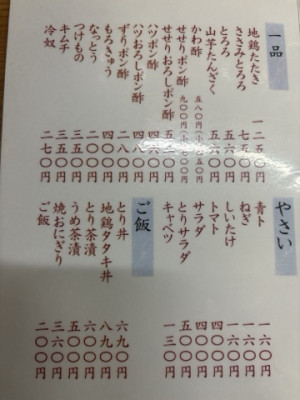 一品
地鶏たたき 一二五〇円
ささみとろろ 七五〇円
とろろ
山芋たんざく
かわ酢 五八〇円
せせりポン酢 九〇〇円
せせりおろしポン酢
ハツポン酢
ハツおろしポン酢
ずりポン酢
もろきゅう 四〇〇円
なっとう 二〇〇円
つけもの 三五〇円
キムチ 三五〇円
冷奴 二七〇円
やさい
青ト 一六〇円
ねぎ 一六〇円
しいたけ 一六〇円
トマト 四〇〇円
サラダ 四〇〇円
とりサラダ 五〇〇円
キャベツ 一三〇円
ご飯
とり丼 六九〇円
地鶏タタキ丼 八九〇円
とり茶漬 六〇〇円
うめ茶漬 五〇〇円
焼おにぎり 三六〇円
ご飯 二〇〇円